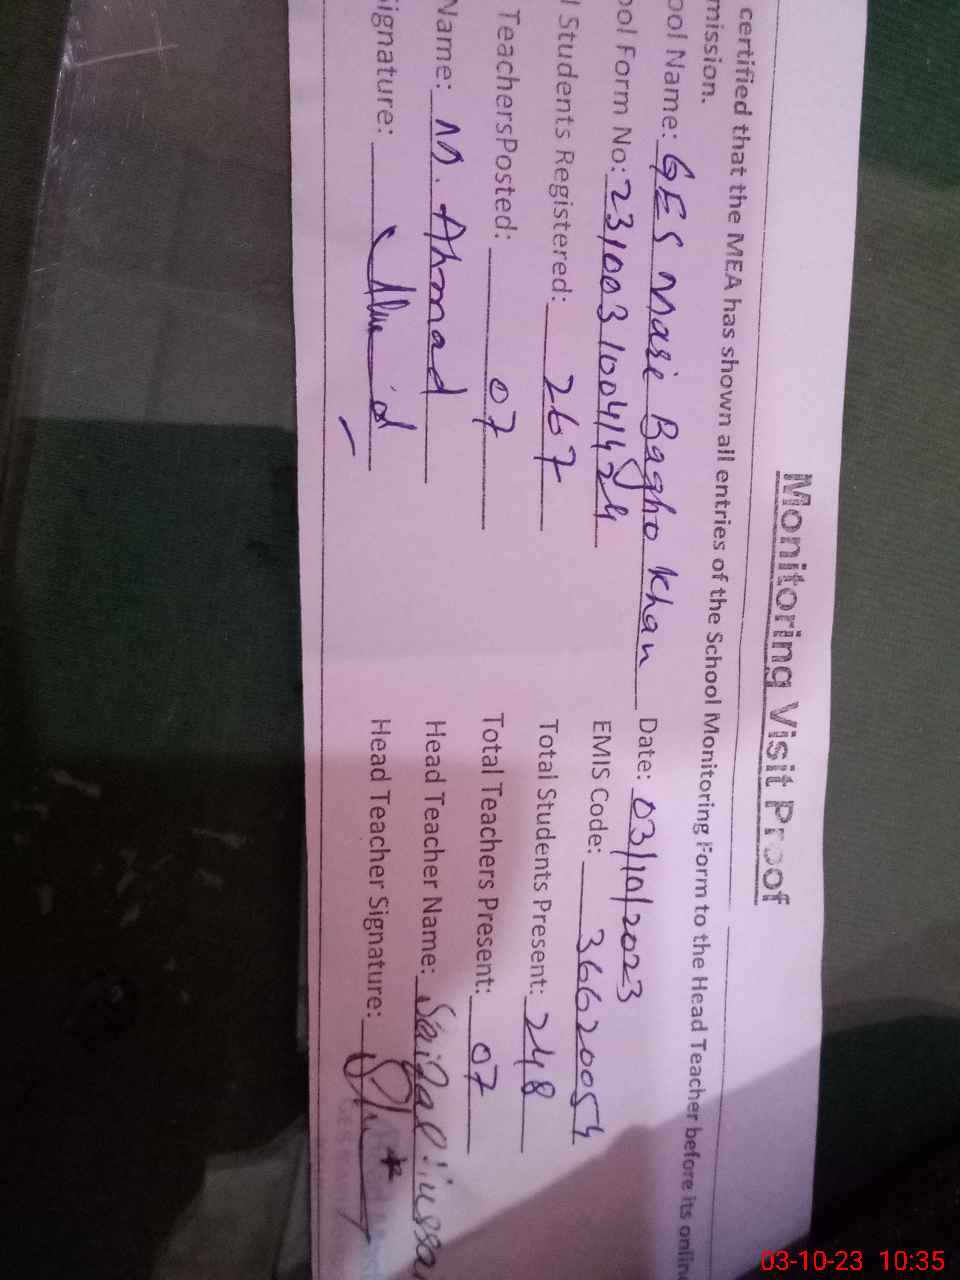 Monitoring Visit Proof
certified that the MEA has shown all entries of the School Monitoring Form to the Head Teacher before its onlin
mission.
ool Name: GES Mari Bagho Khan Date: 03/10/2023
ool Form No: 23100310041424 EMIS Code: 36620054
l Students Registered: 267 Total Students Present: 248
TeachersPosted: 07 Total Teachers Present: 07
Name: M. Ahmad Head Teacher Name:
ignature: Head Teacher Signature:
03-10-23 10:35